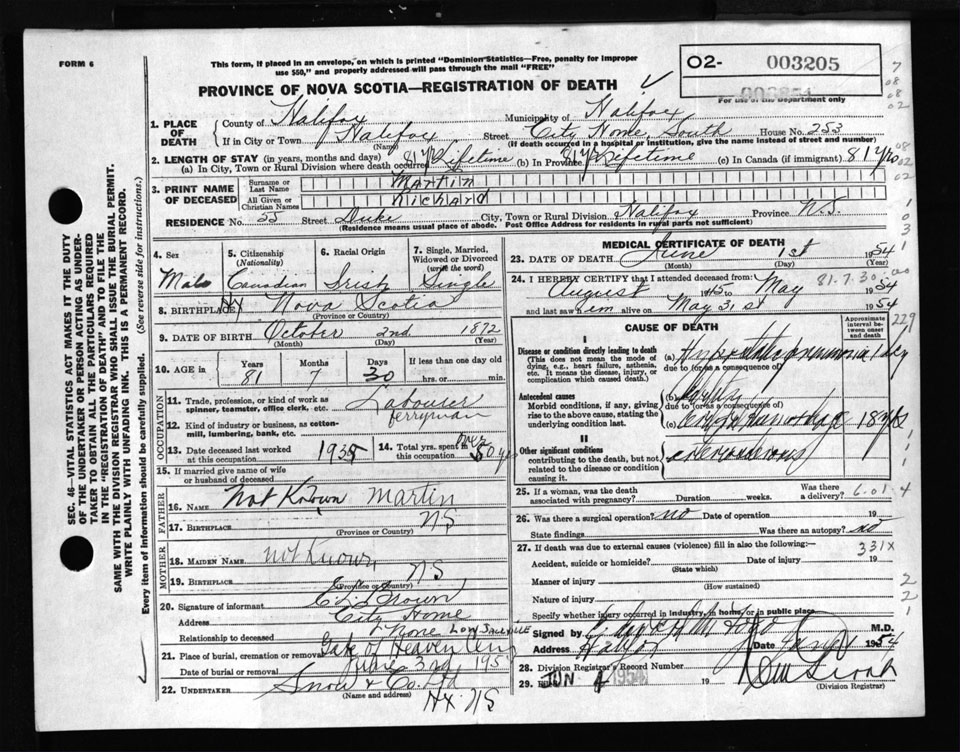 FORM 6
This form, if placed in an envelope, on which is printed "Dominion Statistics—Free, penalty for improper
use $50," and properly addressed will pass through the mail "FREE"
O2- 003205
For use of the Department only
PROVINCE OF NOVA SCOTIA—REGISTRATION OF DEATH
1. PLACE OF DEATH
County of Halifax Municipality of Halifax
If in City or Town Halifax Street City Home, South House No. 253
(Name) (If death occurred in a hospital or institution, give the name instead of street and number)
2. LENGTH OF STAY (in years, months and days)
(a) In City, Town or Rural Division where death occurred 81 yrs Lifetime (b) In Province 81 yrs Lifetime (c) In Canada (if immigrant) 81 yrs
3. PRINT NAME OF DECEASED
Surname or Last Name Martin
All Given or Christian Names Richard
RESIDENCE No. 55 Street Duke City, Town or Rural Division Halifax Province N.S.
(Residence means usual place of abode. Post Office Address for residents in rural parts not sufficient)
4. Sex Male
5. Citizenship (Nationality) Canadian
6. Racial Origin Irish
7. Single, Married, Widowed or Divorced (write the word) Single
8. BIRTHPLACE Hx Nova Scotia
(Province or Country)
9. DATE OF BIRTH October 2nd 1872
(Month) (Day) (Year)
10. AGE in Years 81 Months 7 Days 30 If less than one day old
hrs. or min.
OCCUPATION
11. Trade, profession, or kind of work as spinner, teamster, office clerk, etc. Labourer
ferryman
12. Kind of industry or business, as cotton-mill, lumbering, bank, etc.
13. Date deceased last worked at this occupation 1935
14. Total yrs. spent in this occupation over 50 yrs
15. If married give name of wife or husband of deceased
FATHER
16. NAME Not Known Martin
17. BIRTHPLACE NS
(Province or Country)
MOTHER
18. MAIDEN NAME not Known
19. BIRTHPLACE NS
(Province or Country)
20. Signature of informant
Address City Home
Relationship to deceased None
21. Place of burial, cremation or removal Gate of Heaven Cem
Date of burial or removal June 3rd 195
22. UNDERTAKER Snow & Co. Ltd
(Name and address)
Hx NS
MEDICAL CERTIFICATE OF DEATH
23. DATE OF DEATH June 1st 1954
(Month) (Day) (Year)
24. I HEREBY CERTIFY that I attended deceased from
August 1945 May 1954
and last saw him alive on May 31st 1954
81.7.30
CAUSE OF DEATH
Approximate interval between onset and death
I
Disease or condition directly leading to death
(This does not mean the mode of dying, e.g., heart failure, asthenia, etc. It means the disease, injury, or complication which caused death.)
Hypostatic pneumonia 1 day
due to (or as a consequence of)
Antecedent causes
Morbid conditions, if any, giving rise to the above cause, stating the underlying condition last.
due to (or as a consequence of)
(c) 18 yrs
II
Other significant conditions
contributing to the death, but not related to the disease or condition causing it.
25. If a woman, was the death associated with pregnancy? Duration weeks. Was there a delivery?
6.01.4
26. Was there a surgical operation? no Date of operation 19
State findings Was there an autopsy? no
27. If death was due to external causes (violence) fill in also the following:—
331x
Accident, suicide or homicide? Date of injury 19
(State which)
Manner of injury
(How sustained)
Nature of injury
Specify whether injury occurred in industry, in home, or in public place
Signed by M.D.
Address Halifax Date 1954
28. Division Registrar's Record Number
29. Filed JUN 4 1954 19
(Division Registrar)
SEC. 46—VITAL STATISTICS ACT MAKES IT THE DUTY
OF THE UNDERTAKER OR PERSON ACTING AS UNDER-
TAKER TO OBTAIN ALL THE PARTICULARS REQUIRED
IN THE "REGISTRATION OF DEATH" AND TO FILE THE
SAME WITH THE DIVISION REGISTRAR WHO SHALL ISSUE THE BURIAL PERMIT.
WRITE PLAINLY WITH UNFADING INK. THIS IS A PERMANENT RECORD.
Every item of information should be carefully supplied. (See reverse side for instructions.)